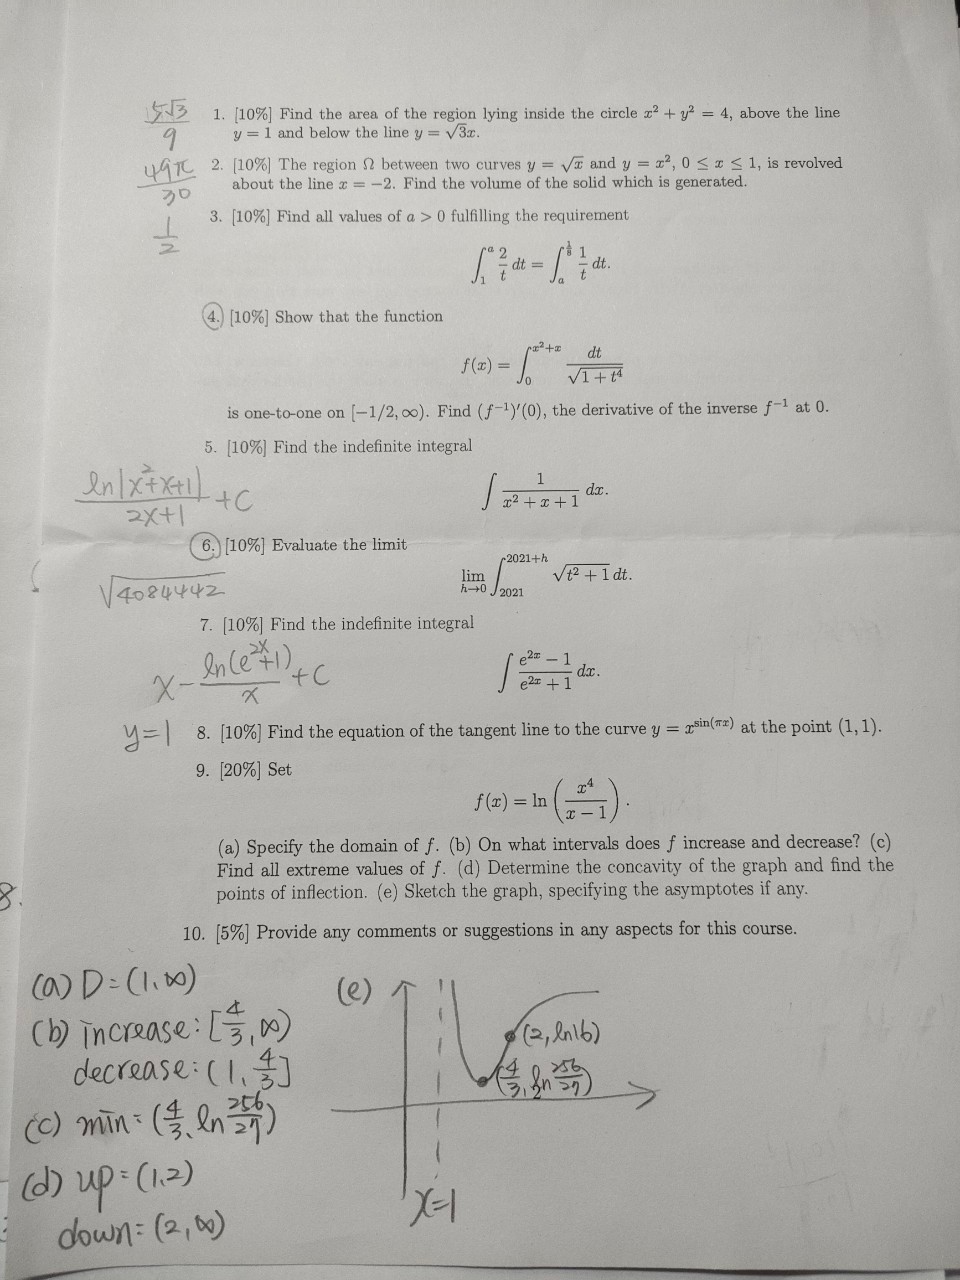 5√3/9
1. [10%] Find the area of the region lying inside the circle x² + y² = 4, above the line
y = 1 and below the line y = √3x.
49π/30
2. [10%] The region Ω between two curves y = √x and y = x², 0 ≤ x ≤ 1, is revolved
about the line x = −2. Find the volume of the solid which is generated.
1/2
3. [10%] Find all values of a > 0 fulfilling the requirement
∫₁ᵃ 2/t dt = ∫ₐ^(1/8) 1/t dt.
4. [10%] Show that the function
f(x) = ∫₀^(x²+x) dt/√(1 + t⁴)
is one-to-one on [−1/2, ∞). Find (f⁻¹)′(0), the derivative of the inverse f⁻¹ at 0.
5. [10%] Find the indefinite integral
ln|x²+x+1|/(2x+1) + C
∫ 1/(x² + x + 1) dx.
6. [10%] Evaluate the limit
lim h→0 ∫₂₀₂₁^(2021+h) √(t² + 1) dt.
√4084442
7. [10%] Find the indefinite integral
x − ln(e^(2x)+1)/x + C
∫ (e^(2x) − 1)/(e^(2x) + 1) dx.
y=1
8. [10%] Find the equation of the tangent line to the curve y = x^(sin(πx)) at the point (1, 1).
9. [20%] Set
f(x) = ln (x⁴/(x − 1)).
(a) Specify the domain of f. (b) On what intervals does f increase and decrease? (c)
Find all extreme values of f. (d) Determine the concavity of the graph and find the
points of inflection. (e) Sketch the graph, specifying the asymptotes if any.
8.
10. [5%] Provide any comments or suggestions in any aspects for this course.
(a) D=(1,∞)
(b) increase: [4/3, ∞)
decrease: (1, 4/3]
(c) min: (4/3, ln 256/27)
(d) up: (1,2)
down: (2,∞)
(e)
(2, ln16)
(4/3, ln 256/27)
2
x=1